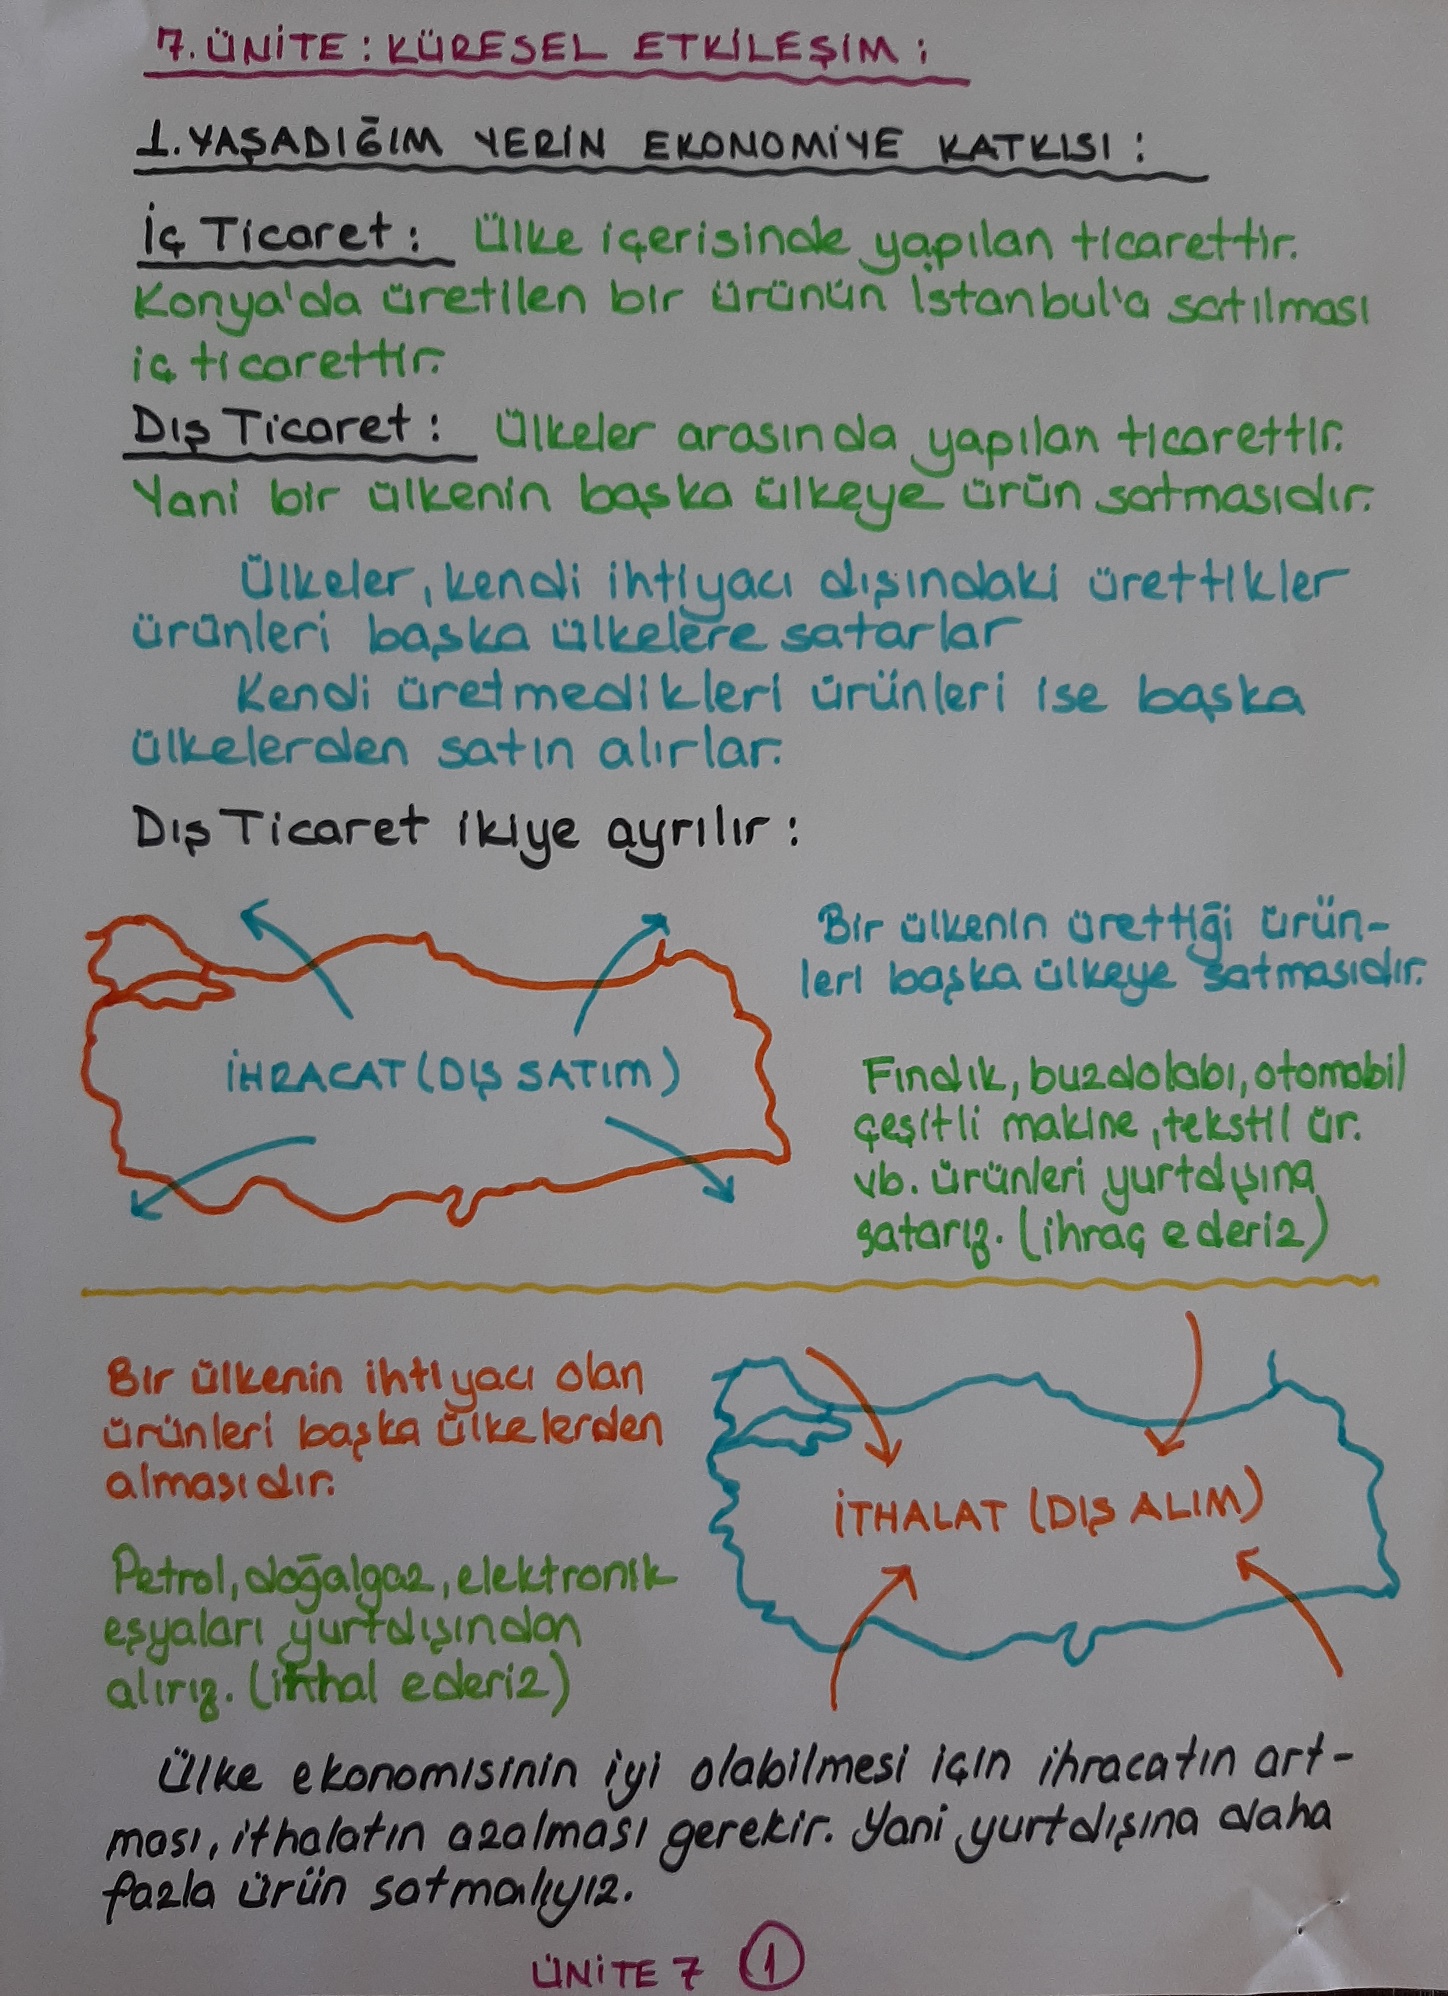 7. ÜNİTE : KÜRESEL ETKİLEŞİM :
1. YAŞADIĞIM YERİN EKONOMİYE KATKISI :
İç Ticaret : Ülke içerisinde yapılan ticarettir.
Konya'da üretilen bir ürünün İstanbul'a satılması
iç ticarettir.
Dış Ticaret : Ülkeler arasında yapılan ticarettir.
Yani bir ülkenin başka ülkeye ürün satmasıdır.
Ülkeler, kendi ihtiyacı dışındaki ürettikler
ürünleri başka ülkelere satarlar
Kendi üretmedikleri ürünleri ise başka
ülkelerden satın alırlar.
Dış Ticaret ikiye ayrılır :
Bir ülkenin ürettiği ürün-
leri başka ülkeye satmasıdır.
İHRACAT (DIŞ SATIM)
Fındık, buzdolabı, otomobil
çeşitli makine, tekstil ür.
vb. ürünleri yurtdışına
satarız. (ihraç ederiz)
Bir ülkenin ihtiyacı olan
ürünleri başka ülkelerden
almasıdır.
İTHALAT (DIŞ ALIM)
Petrol, doğalgaz, elektronik
eşyaları yurtdışından
alırız. (ithal ederiz)
Ülke ekonomisinin iyi olabilmesi için ihracatın art-
ması, ithalatın azalması gerekir. Yani yurtdışına daha
fazla ürün satmalıyız.
ÜNİTE 7 1